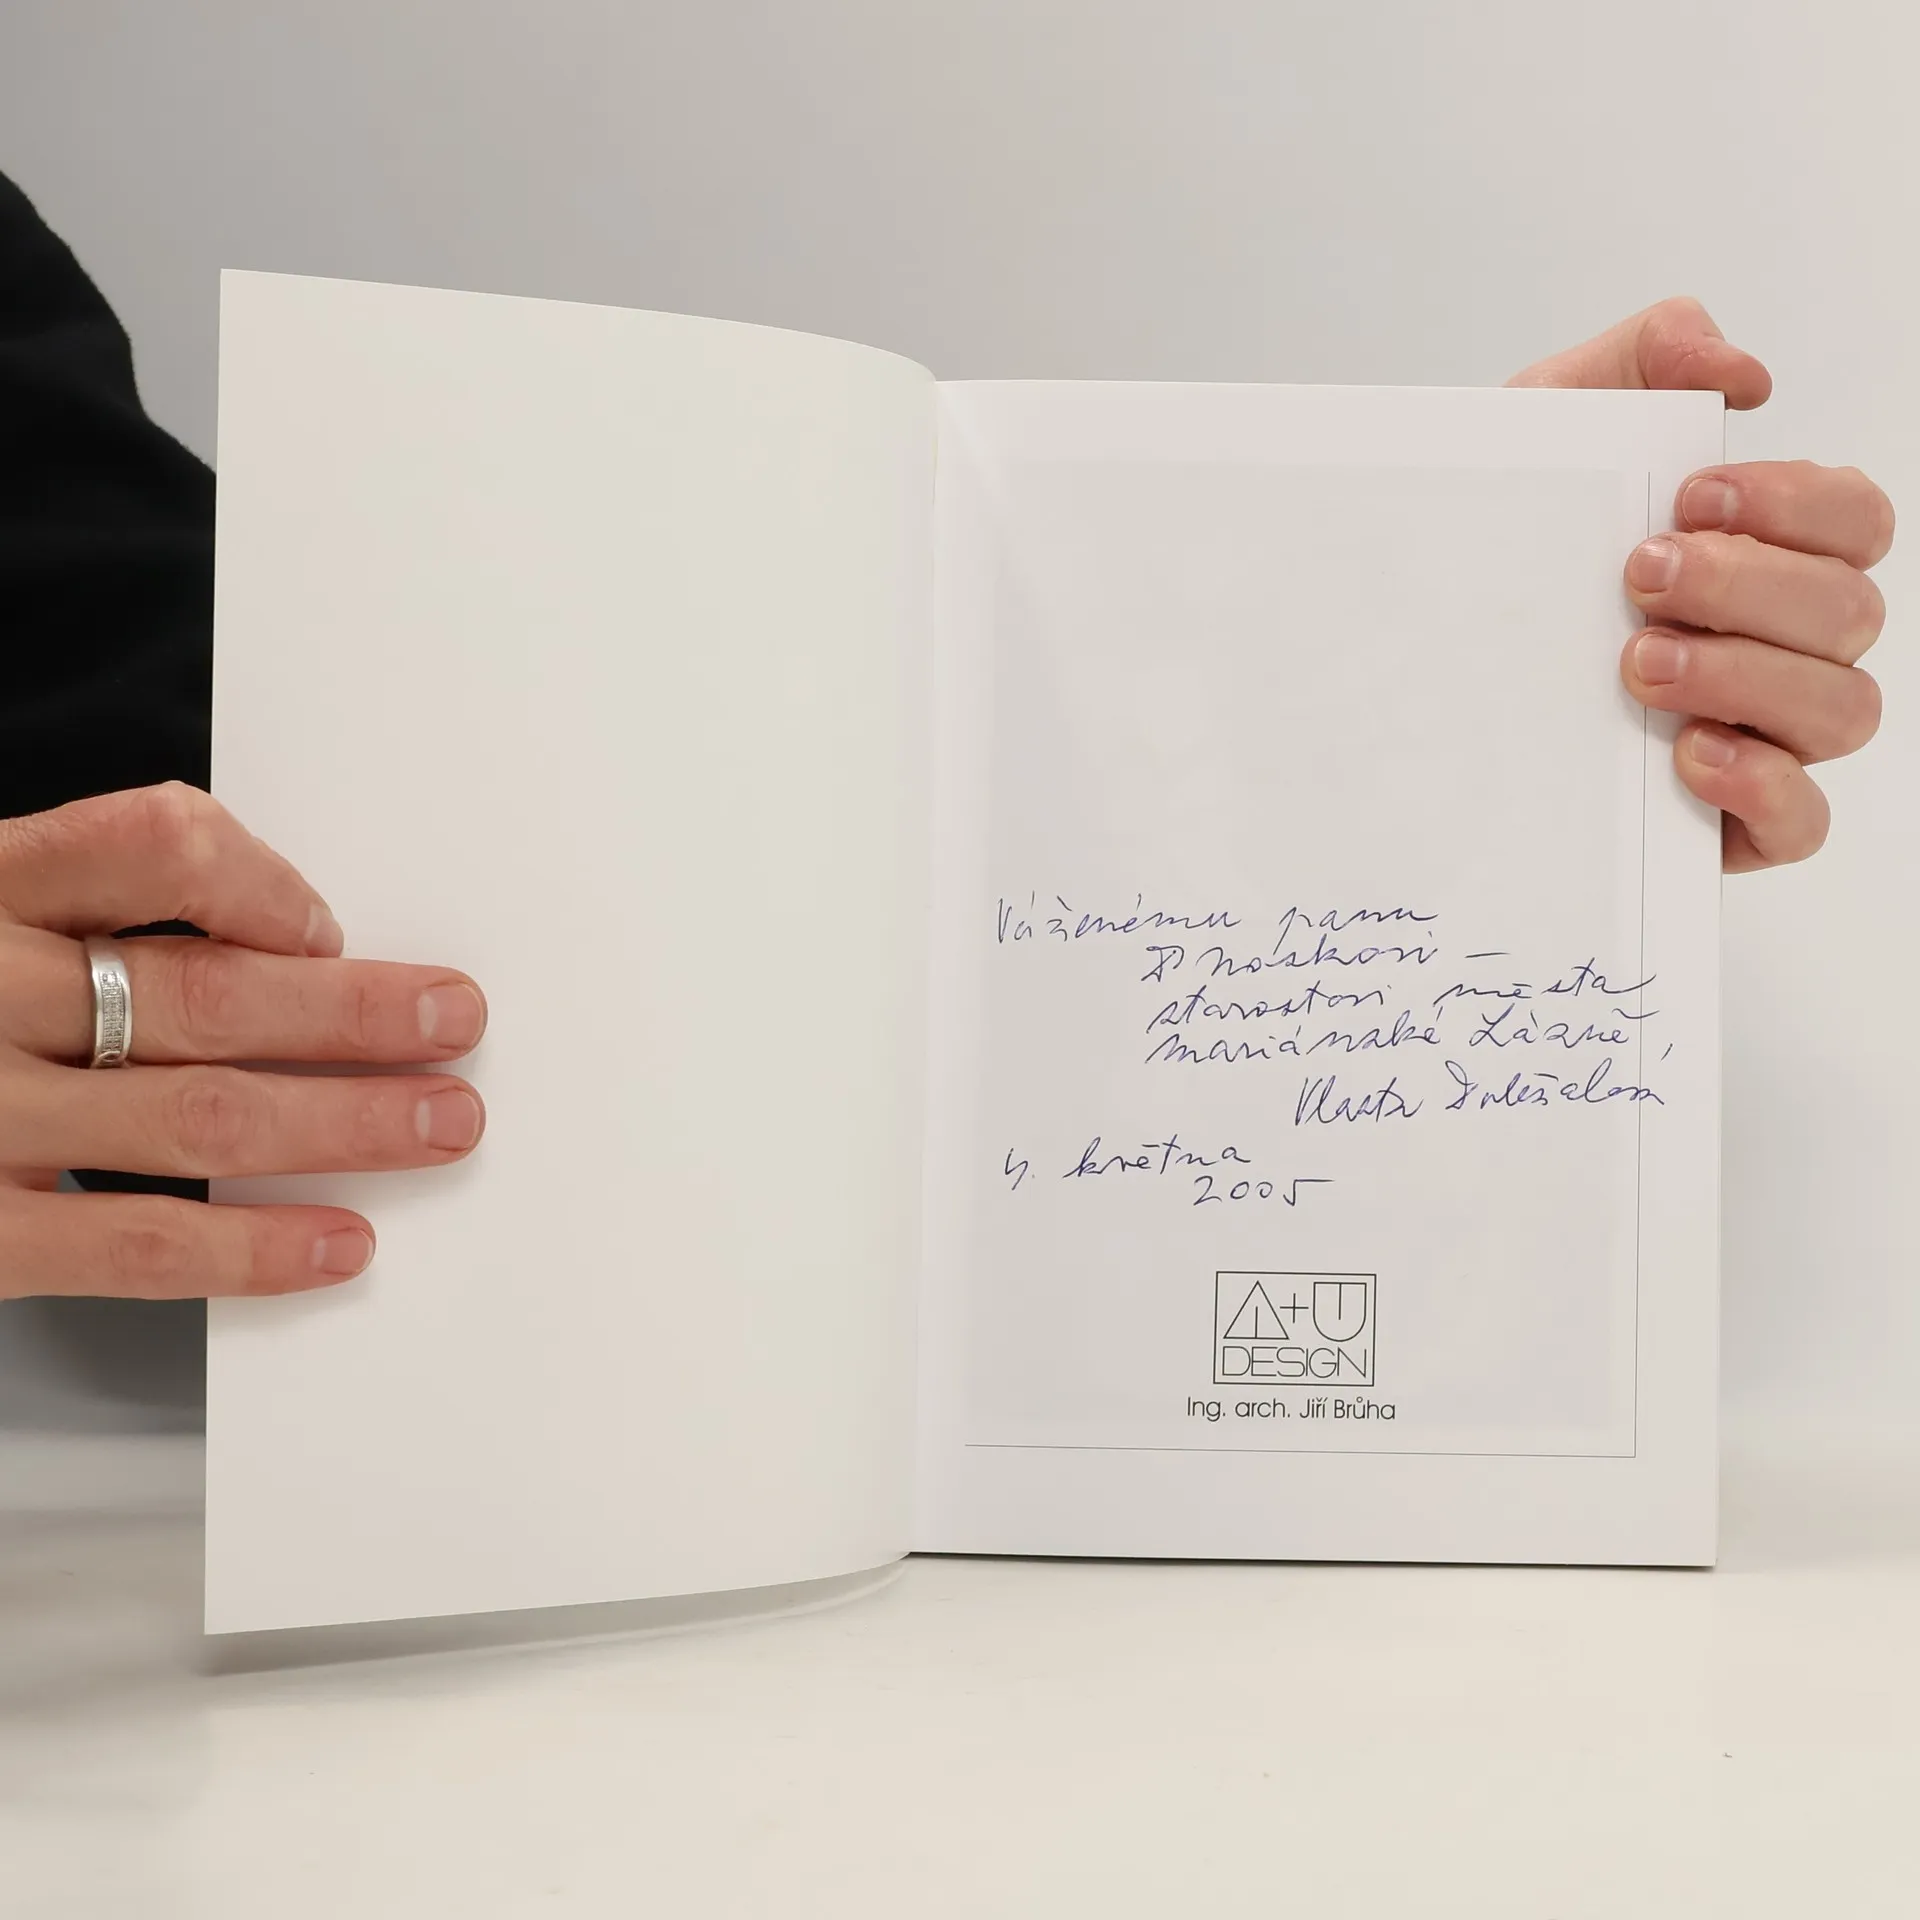 Váženému panu
Noskovi –
starostovi města
Mariánské Lázně,
Vlasta Doležalová
4. května
2005
A+U
DESIGN
Ing. arch. Jiří Brůha